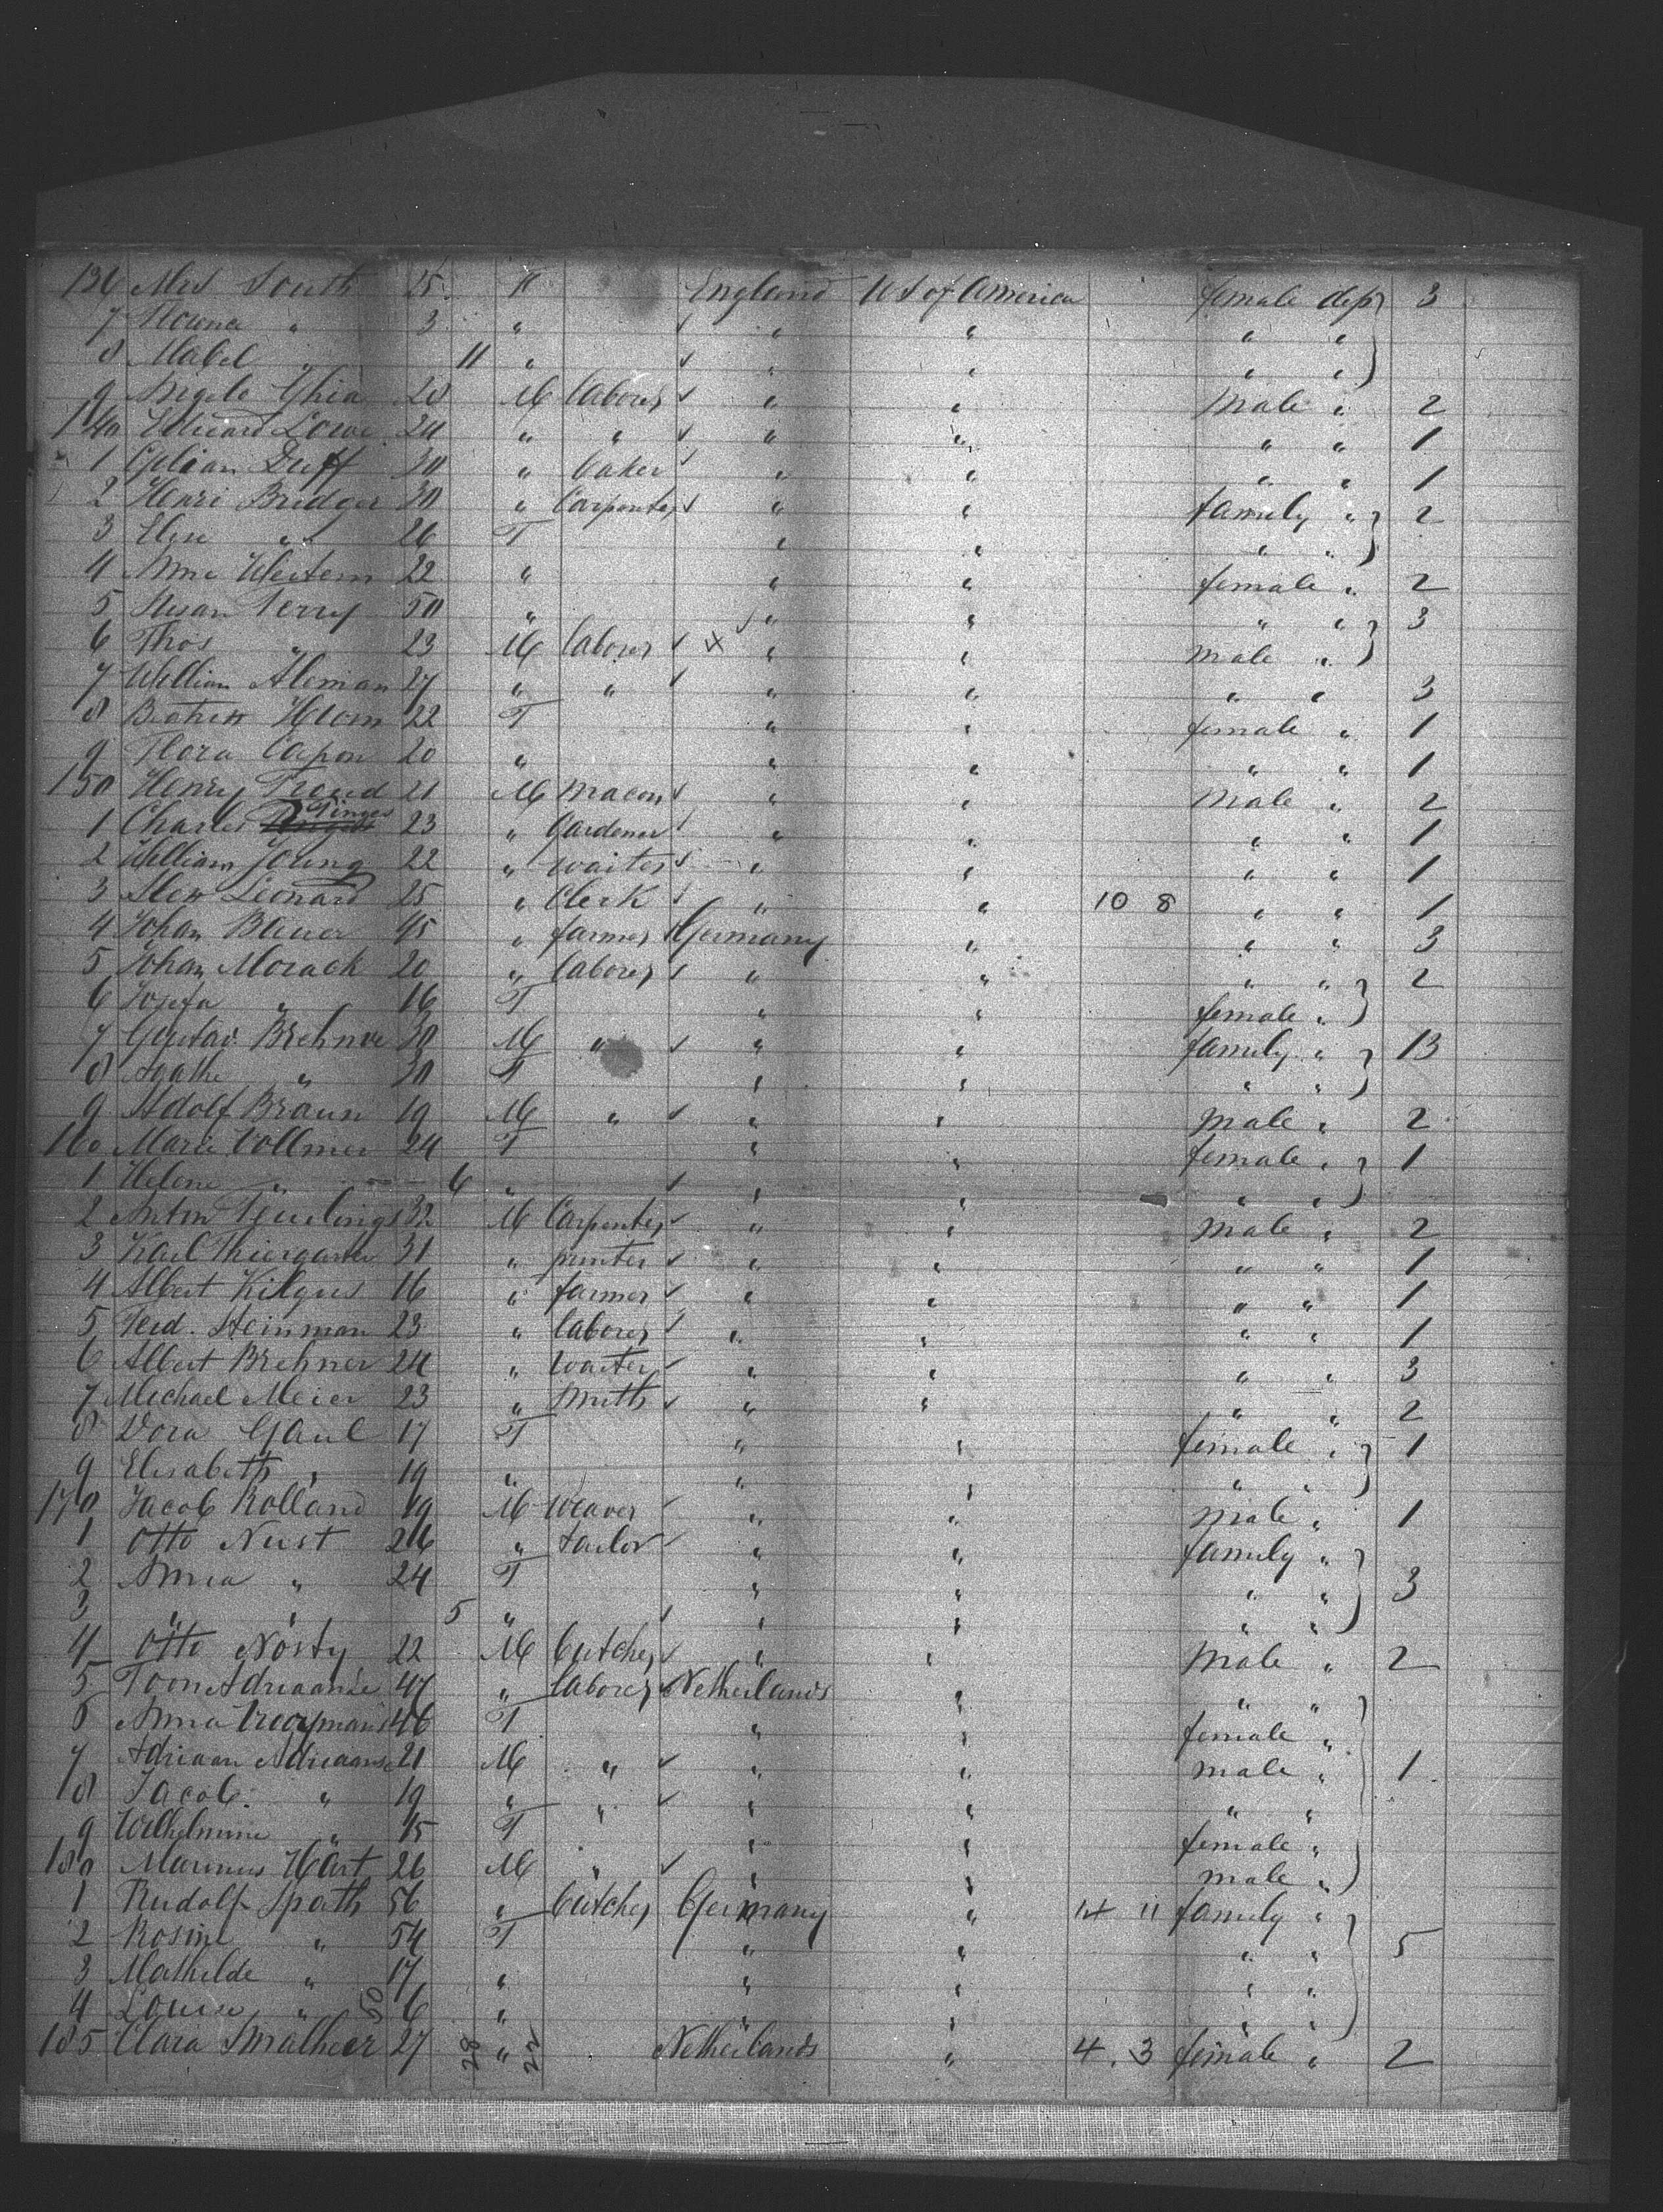 136 Mrs South 25 F England U S of America female dep 3
7 Florence " 3 " " " " "
8 Mabel " 11 " " " " "
9 Ghia 28 M laborer " " Male " 2
140 Edward Lowe 24 " " " " " " 1
1 Duff 30 " baker " " " " 1
2 Henri Bridger 30 " Carpenter " " family " 2
3 Elise " 26 F " " " "
4 Anne Western 22 " " " female " 2
5 Susan Terry 50 " " " " " 3
6 Thos " 23 M laborer x " " male "
7 William Aleman 27 " " " " " " 3
8 22 F " " female " 1
9 Flora Capon 20 " " " " " 1
150 Henry 21 M macon " " Male " 2
1 Charles 23 " Gardener " " " " 1
2 William Young 22 " waiter " " " " 1
3 Alex Leonard 25 " Clerk " " 10 8 " " 1
4 Johan Bauer 45 " farmer Germany " " " 3
5 Johan Morack 20 " laborer " " " " 2
6 Josefa " 16 F " " female "
7 Gustav 30 M " " " family " 13
8 Agathe " 30 F " " " "
9 Adolf Braun 19 M " " " Male " 2
160 Marie Vollmer 24 F " " female " 1
1 Helene " 6 " " " " "
2 Anton 32 M Carpenter " " Male " 2
3 Karl Thiergarten 31 " printer " " " " 1
4 Albert Kilgus 16 " farmer " " " " 1
5 Ferd. Steinman 23 " laborer " " " " 1
6 Albert Brehner 24 " waiter " " " " 3
7 Michael Meier 23 " smith " " " " 2
8 Dora Gaul 17 F " " female " 1
9 Elisabeth " 19 " " " " "
170 Jacob Rolland 49 M weaver " " male " 1
1 Otto Nust 26 " tailor " " family "
2 Anna " 24 F " " " " 3
3 " " 5 " " " " "
4 Otto Nosty 22 M butcher " " Male " 2
5 Toon Adriaanse 47 " laborer Netherlands " " "
6 Anna 46 F " " female "
7 Adriaan Adriaanse 21 M " " " male " 1
8 Jacob " 19 " " " " " "
9 Wilhelmine " 15 F " " female "
180 Marinus 26 M " " " male "
1 Rudolf Spath 56 " butcher Germany " 14 11 family "
2 Rosine " 54 F " " " " 5
3 Mathilde " 17 " " " " "
4 Louise " 50 6 " " " " "
185 Clara 27 28 " 22 Netherlands " 4. 3 female " 2